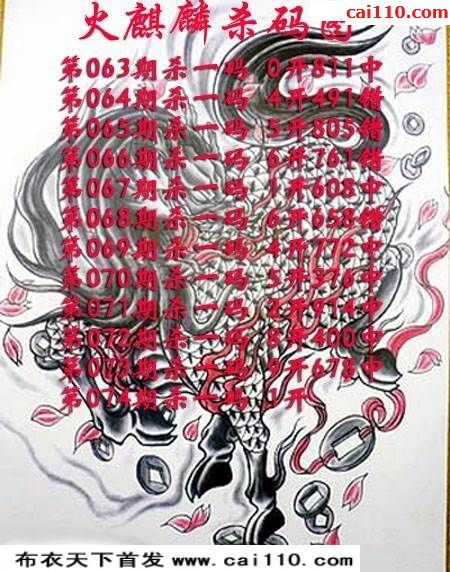 cai110.com
火麒麟杀码图
第063期杀一码 0开811中
第064期杀一码 4开491错
第065期杀一码 5开805错
第066期杀一码 6开761错
第067期杀一码 1开608中
第068期杀一码 6开658错
第069期杀一码 4开772中
第070期杀一码 5开376中
第071期杀一码 2开914中
第072期杀一码 8开400中
第073期杀一码 9开678中
第074期杀一码 1开
布衣天下首发 www.cai110.com